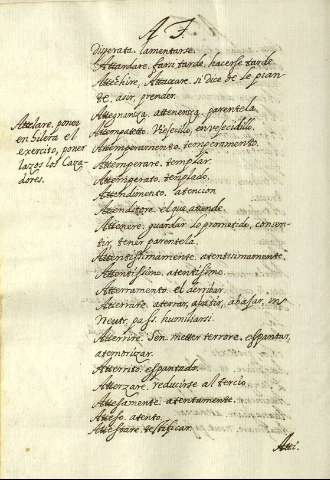 A T.
disperata. lamentarse.
Attardare. farsi tarde, hacerse tarde
Attechire, Attaccare. si dice de le pian-
te. asir, prender.
Attegnenza, attenenza. parentela
Attempatetto. Viejecillo, envejecidillo.
Attemperamento. temperamento.
Attemperare. templar.
Attemperato. templado.
Attendimento. atencion
Attenditore. el que atiende.
Attenere. guardar lo prometido, consen-
tir, tener parentela.
Attentissimamente. atentissimamente.
Attentissimo. atentissimo.
Atterramento. el derribar.
Atterrire. aterrar, abatir, abaxar, in
Neutr. pass. humillarsi.
Atterrire. Sen. metter terrore. espantar,
atemorizar.
Atterrito. espantado.
Atterzare. reducirse al tercio
Attesamente. atentamente.
Atteso. atento.
Attestare. testificar.
Atti.
Attelare, poner
en hilera el
exercito, poner
lazos los Caza-
dores.